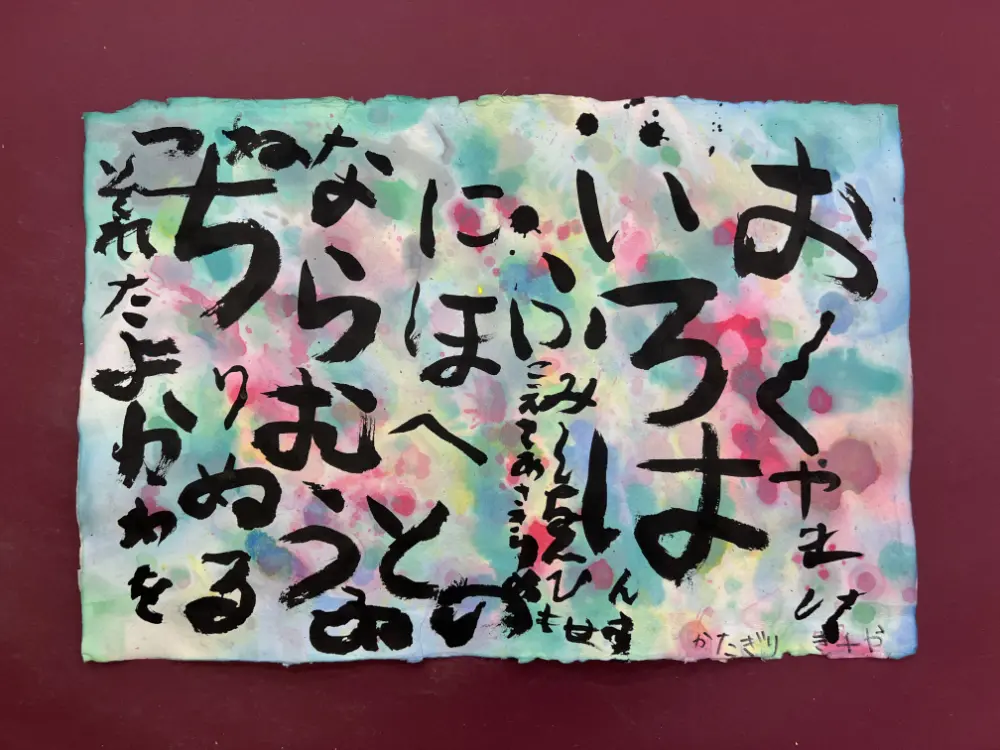 いろは
にほへと
ちりぬる
をわかよたれそ
つね
ならむうゐの
おくやまけ
ふ
こえてあさきゆめ
みしゑひもせすん
かたぎり